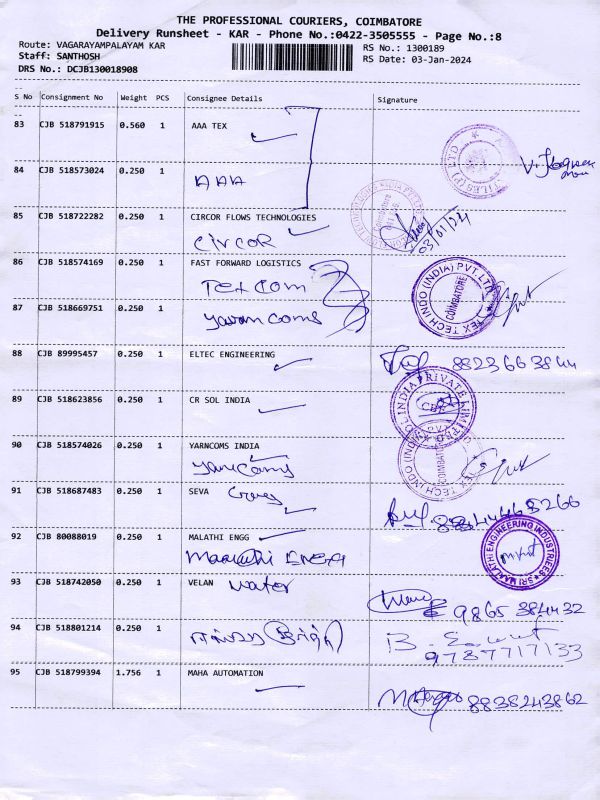 THE PROFESSIONAL COURIERS, COIMBATORE
Delivery Runsheet - KAR - Phone No.:0422-3505555 - Page No.:8
Route: VAGARAYAMPALAYAM KAR
RS No.: 1300189
Staff: SANTHOSH
RS Date: 03-Jan-2024
DRS No.: DCJB130018908
S No Consignment No Weight PCS Consignee Details Signature
83 CJB 518791915 0.560 1 AAA TEX
84 CJB 518573024 0.250 1
AAA
85 CJB 518722282 0.250 1 CIRCOR FLOWS TECHNOLOGIES
CIRCOR
03/01/24
86 CJB 518574169 0.250 1 FAST FORWARD LOGISTICS
Tex Com
TEX TECH INDO (INDIA) PVT LTD
COIMBATORE
87 CJB 518669751 0.250 1
Yarancoms
88 CJB 89995457 0.250 1 ELTEC ENGINEERING
8823663844
89 CJB 518623856 0.250 1 CR SOL INDIA
INDIA PRIVATE LIMITED
CBE
90 CJB 518574026 0.250 1 YARNCOMS INDIA
91 CJB 518687483 0.250 1 SEVA
92 CJB 80088019 0.250 1 MALATHI ENGG
SRI MAALATHI ENGINEERING INDUSTRIES
93 CJB 518742050 0.250 1 VELAN water
9865 384432
94 CJB 518801214 0.250 1
9787717133
95 CJB 518799394 1.756 1 MAHA AUTOMATION
8838243862